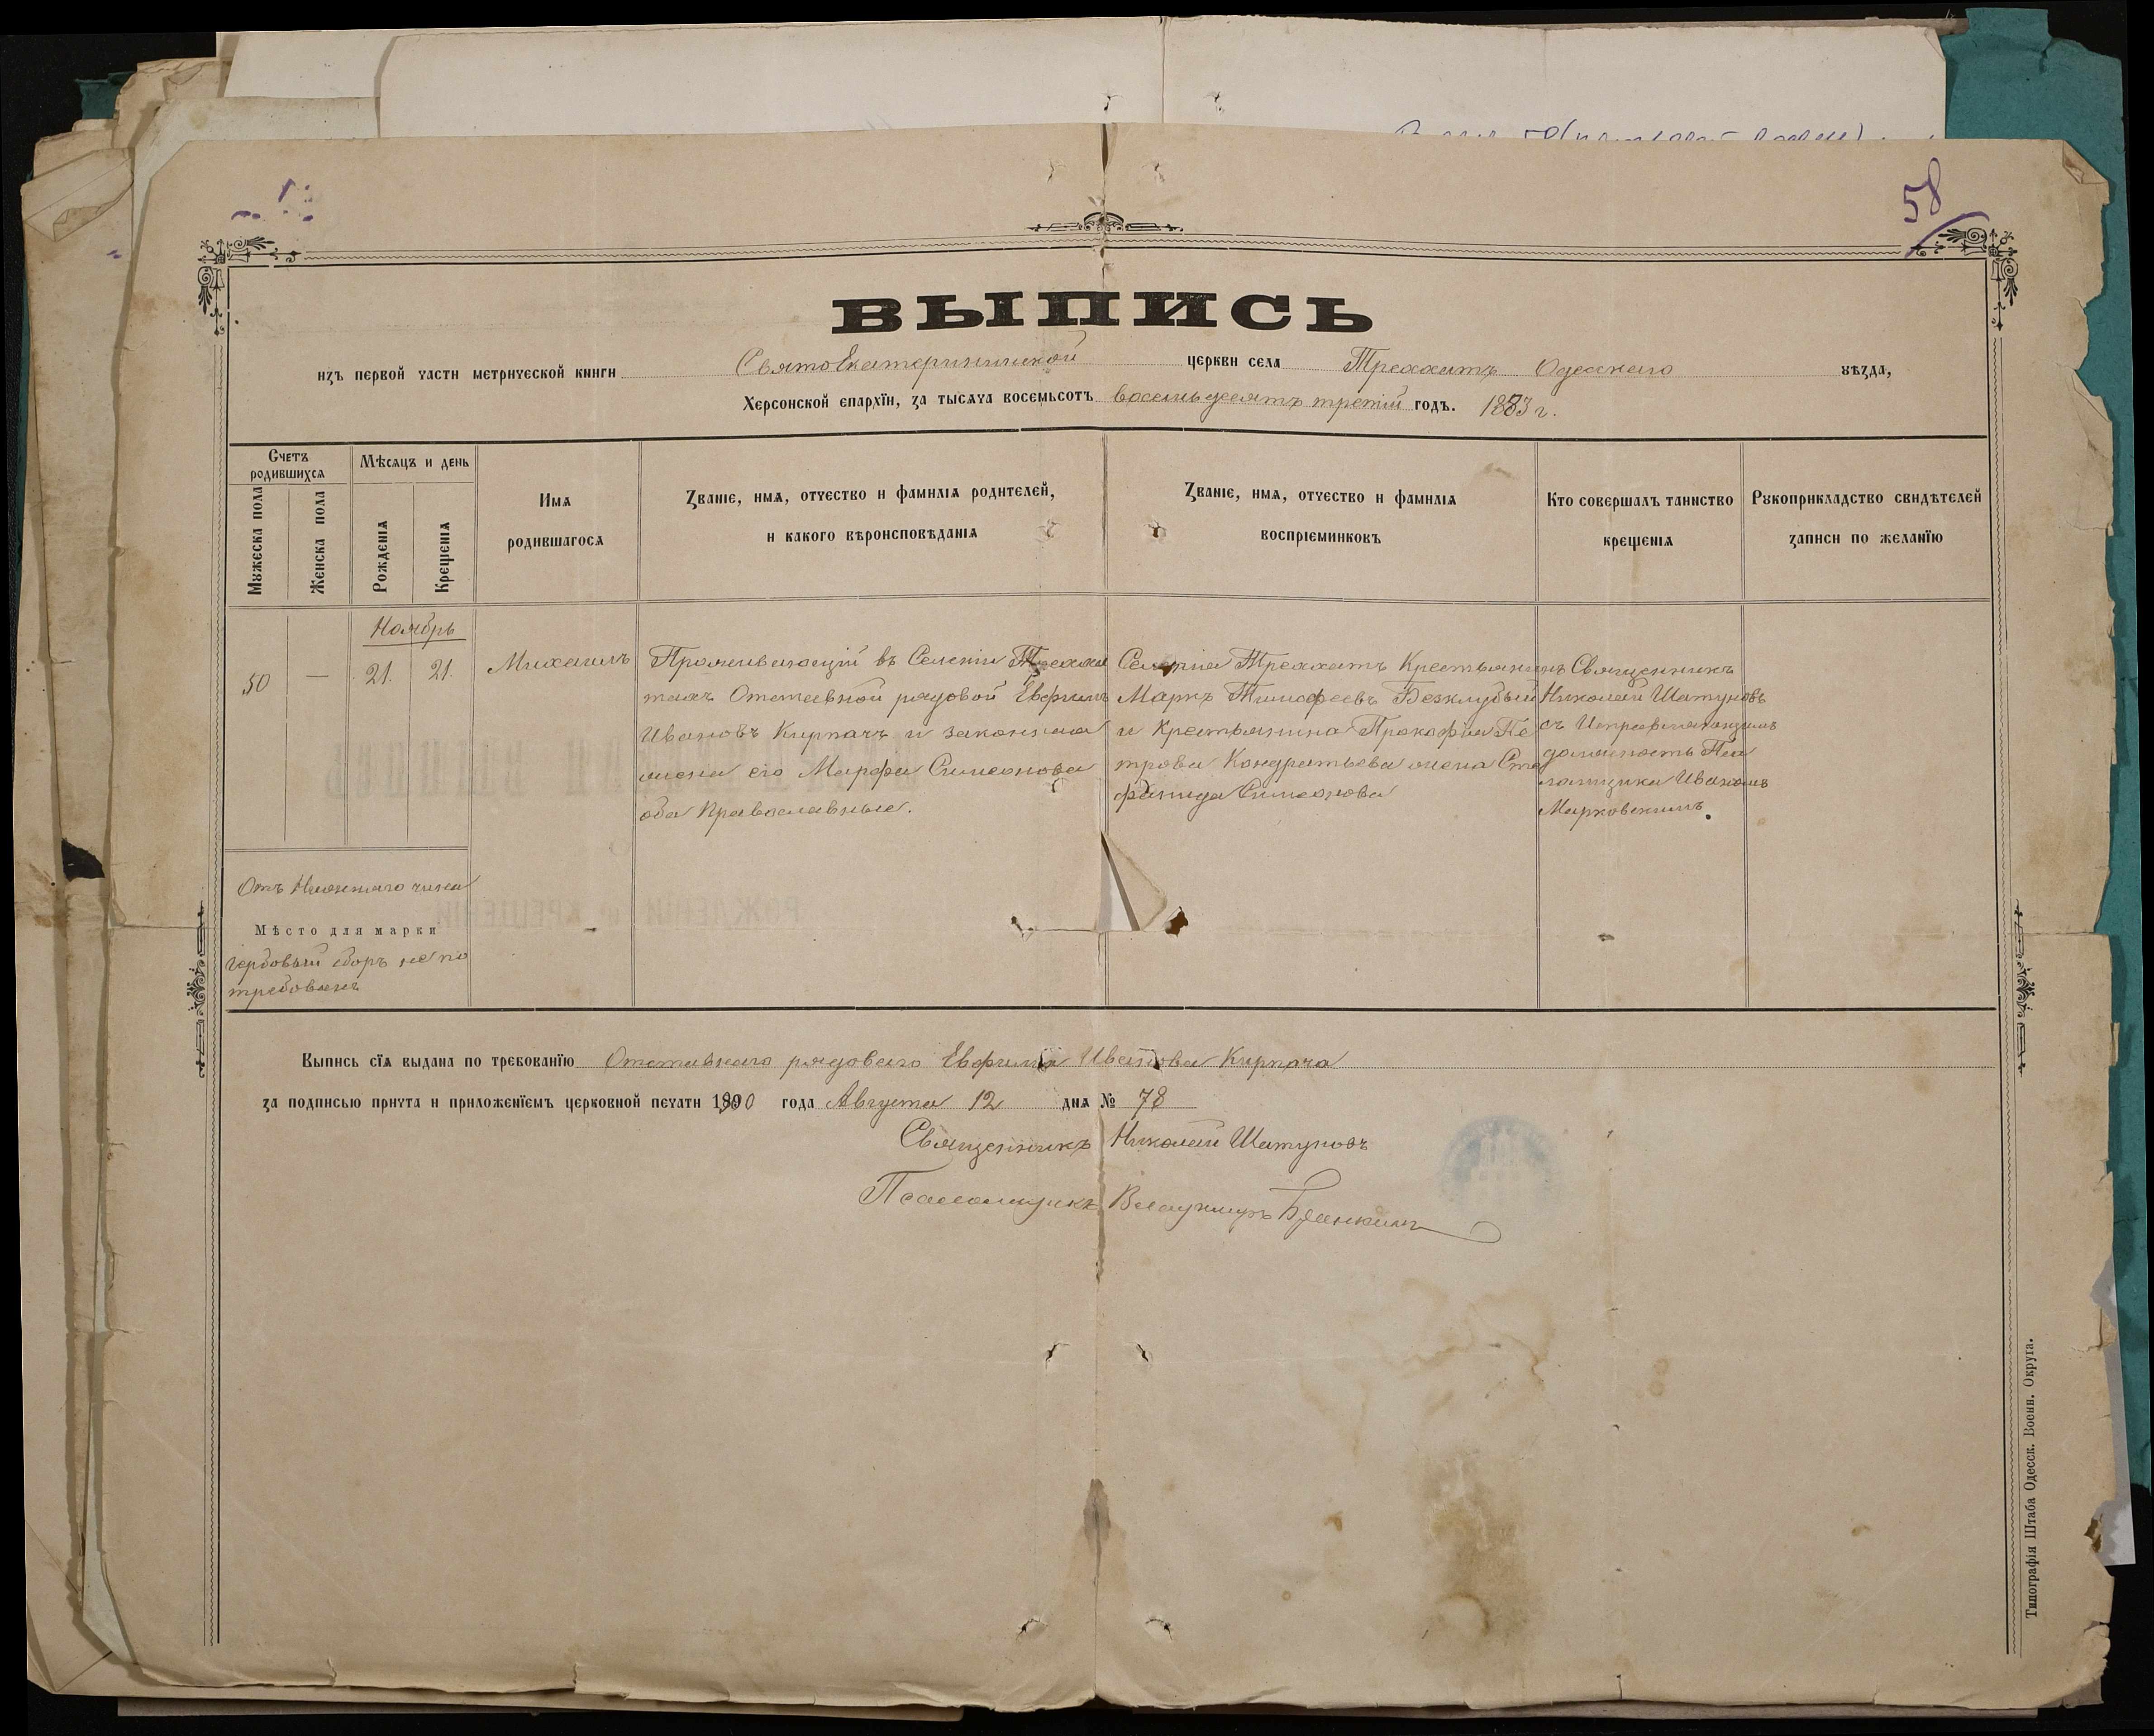 58
ВЫПИСЬ
изъ первой части метрической книги СвятоЕкатерининской церкви села Треххатъ Одесскаго уѣзда,
Херсонской епархїи, за тысяча восемьсотъ восемьдесятъ третій годъ. 1883 г.
Счетъ родившихся
Мѣсяцъ и день
Мужеска пола
Женска пола
Рожденія
Крещенія
Имя
родившагося
Званіе, имя, отчество и фамилія родителей,
и какого вѣроисповѣданія
Званіе, имя, отчество и фамилія
воспріемниковъ
Кто совершалъ таинство
крещенія
Рукоприкладство свидѣтелей
записи по желанїю
Ноябрь
50
—
21.
21.
Михаилъ
Проживающій въ Селеніи Трехха
тахъ Отставной рядовой Евфимъ
Ивановъ Кирпачъ и законная
жена его Марфа Симеонова
оба Православные.
Селенія Треххатъ Крестьянинъ
Маркъ Тимофеевъ Безклубый
и Крестьянина Прокофія Пе
трова Кондратьева жена Сте
фанида Симеонова
Священникъ
Николай Шатуновъ
съ Исправляющимъ
должность Пса
ломщика Иваномъ
Марковскимъ.
Отъ Нижняго чина
Мѣсто для марки
гербовый сборъ не по
требованъ
Выпись сїя выдана по требованїю Отставнаго рядоваго Евфима Иванова Кирпача
за подписью причта и приложенїемъ церковной печати 1890 года Августа 12 дня № 78
Священникъ Николай Шатуновъ
Псаломщикъ Владимиръ
Типографія Штаба Одесск. Военн. Округа.